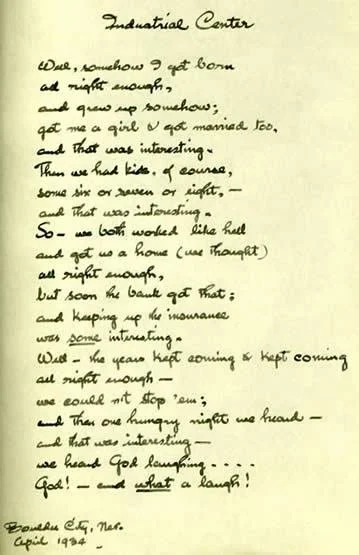 Industrial Center
Well, somehow I got born
all right enough,
and grew up somehow;
got me a girl & got married too,
and that was interesting.
Then we had kids, of course,
some six or seven or eight, —
and that was interesting.
So — we both worked like hell
and got us a home (we thought)
all right enough,
but soon the bank got that;
and keeping up the insurance
was some interesting.
Well — the years kept coming & kept coming
all right enough —
we could n't stop 'em;
and then one hungry night we heard —
and that was interesting —
we heard God laughing . . . .
God! — and what a laugh!
Boulder City, Nev.
April 1934